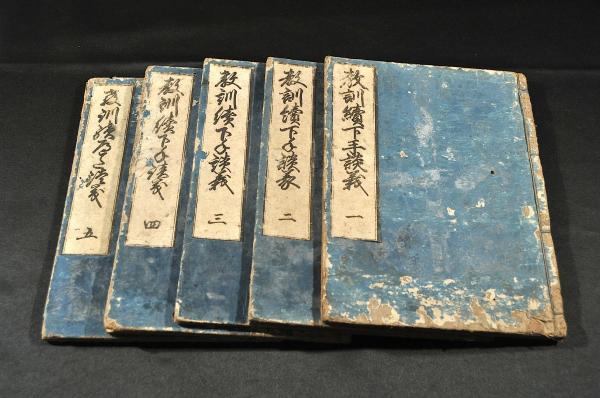 教訓續下手談義 一
教訓續下手談義 二
教訓續下手談義 三
教訓續下手談義 四
教訓續 談義 五